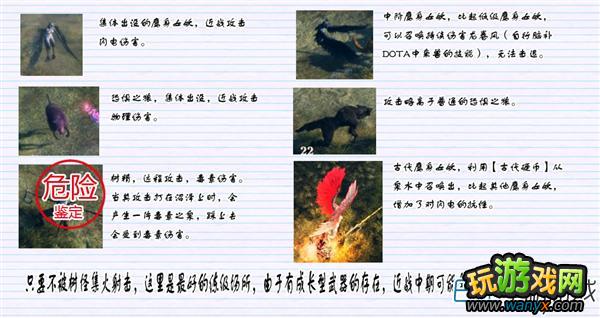 集体出没的鹰身女妖，近战攻击
闪电伤害。
中阶鹰身女妖，比起低级鹰身女妖，
可以召唤持续伤害龙卷风（自行脑补
DOTA中桨兽的技能），无法击退。
恐惧之狼，集体出没，近战攻击
物理伤害。
攻击略高于普通的恐惧之狼。
22
树精，远程攻击，毒素伤害。
当其攻击打在沼泽上时，会
产生一阵毒素之泉，踩上去
会受到毒素伤害。
危险
鉴定
古代鹰身女妖，利用【古代硬币】从
泉水中召唤出，比起其他鹰身女妖，
增加了对闪电的抗性。
只要不被树怪集火射击，这里是最好的练级场所，由于有成长型武器的存在，近战中期可
玩游戏网
www.wanyx.com